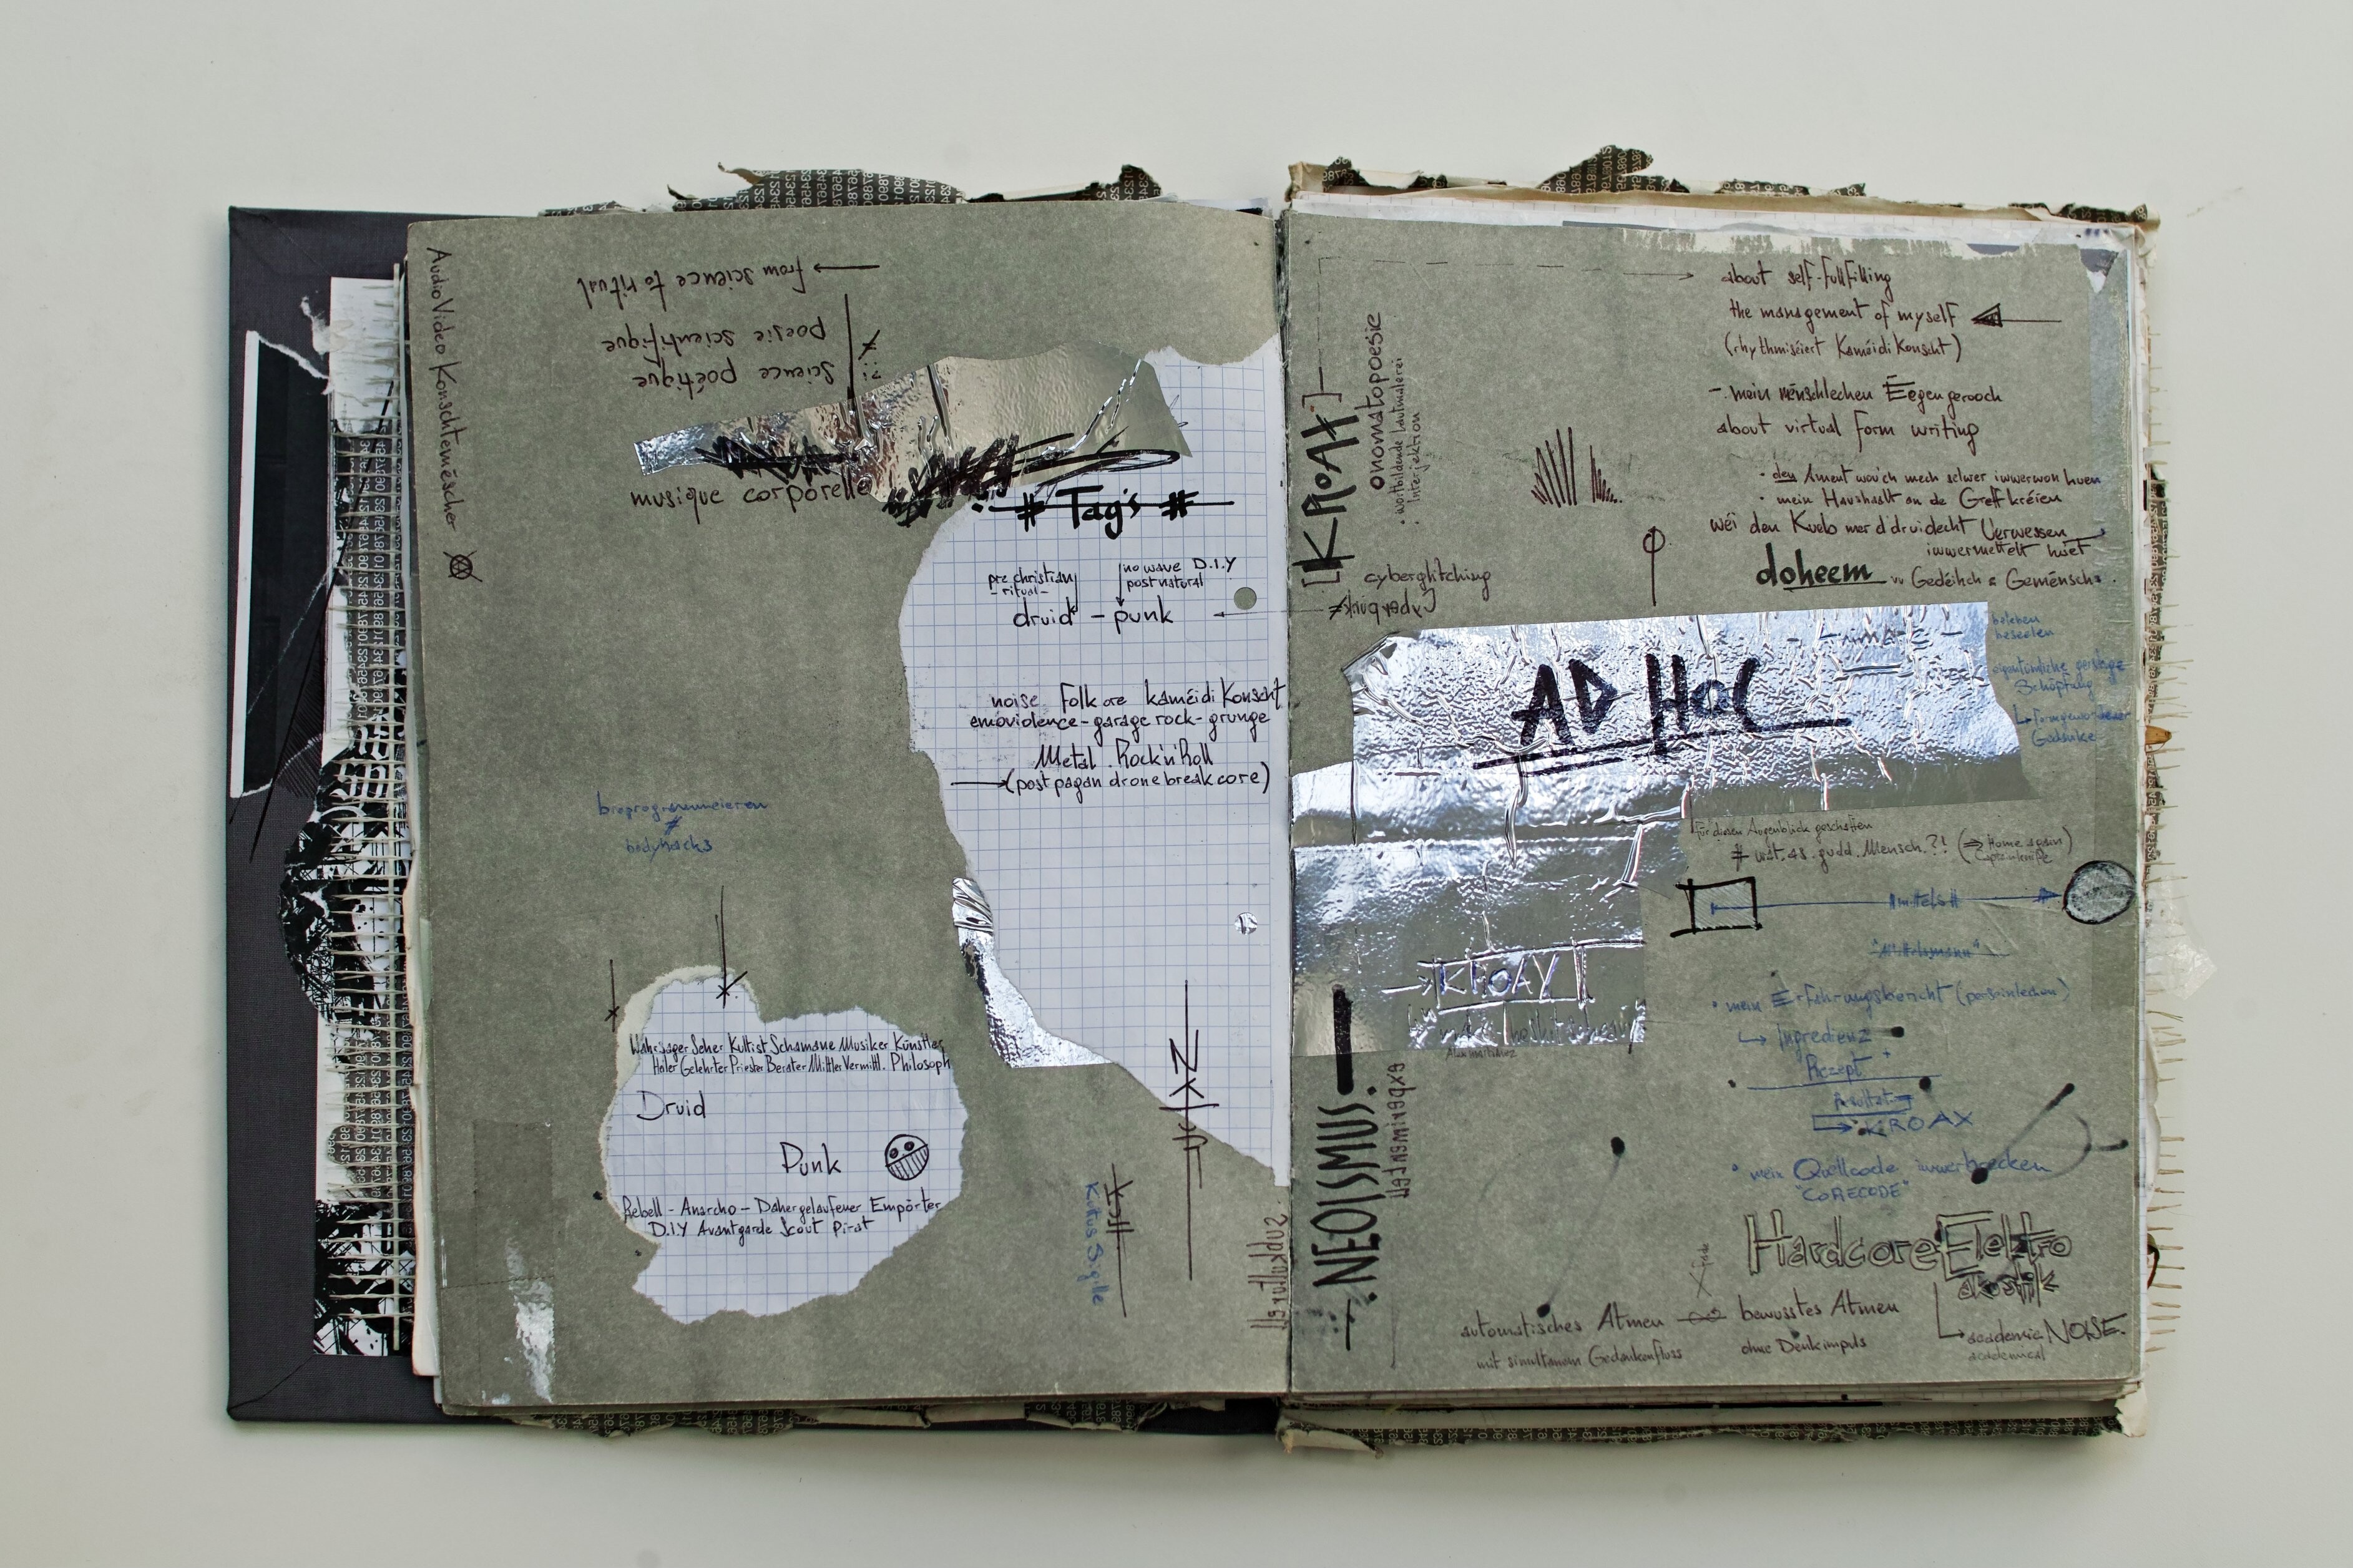 AudioVideo Konschtemëscher
from science to ritual
poesie scientifique
science poétique
musique corporelle
# Tag's #
pre christian
- ritual -
no wave D.I.Y
postnatural
druid - punk
noise folkore kaméidi Konscht
emoviolence - garage rock - grunge
Metal Rock'n'Roll
(post pagan drone breakcore)
bodyhacks
Wahrsager Seher Kultist Schamane Musiker Künstler
Maler Gelehrter Priester Berater Mittler Vermittl. Philosoph
Druid
Punk
Rebell - Anarcho - Dahergelaufener Empörter
D.I.Y Avantgarde Scout Pirat
Kultus Sigille
Subkulturell
[KROAX]
onomatopoesie
wortbildende Lautmalerei
Interjektion
cyberglitching
Cyberpunk
about self-fullfilling
the management of myself
(rhythmiséiert Kaméidi Konscht)
- mein mënschlechen Eegengerooch
about virtual form writing
den Ament wou'ch mech selwer iwwerwonnen
mein Haushalt an de Grëff kréien
wéi den Kueb mer d'druidecht Verwessen
iwwermëttelt huet
doheem vu Gedéihch & Gemënsch
beleben
beseelen
eigentümliche geistige
Schöpfung
formgewordener
Gedanke
AD HOC
für diesen Augenblick geschaffen
# wat.as.gudd.Mensch.?!
mittels
"Mittelsmann"
KROAX
mein Erfahrungsbericht (perséinlechen)
Ingredienz
Rezept
Resultat
KROAX
mein Quellcode iwwerbrécken
"CORECODE"
NEOISMUS
experimentell
Hardcore Elektro
akustik
academic NOISE.
academical
automatisches Atmen bewusstes Atmen
mit simultanem Gedankenfluss ohne Denkimpuls